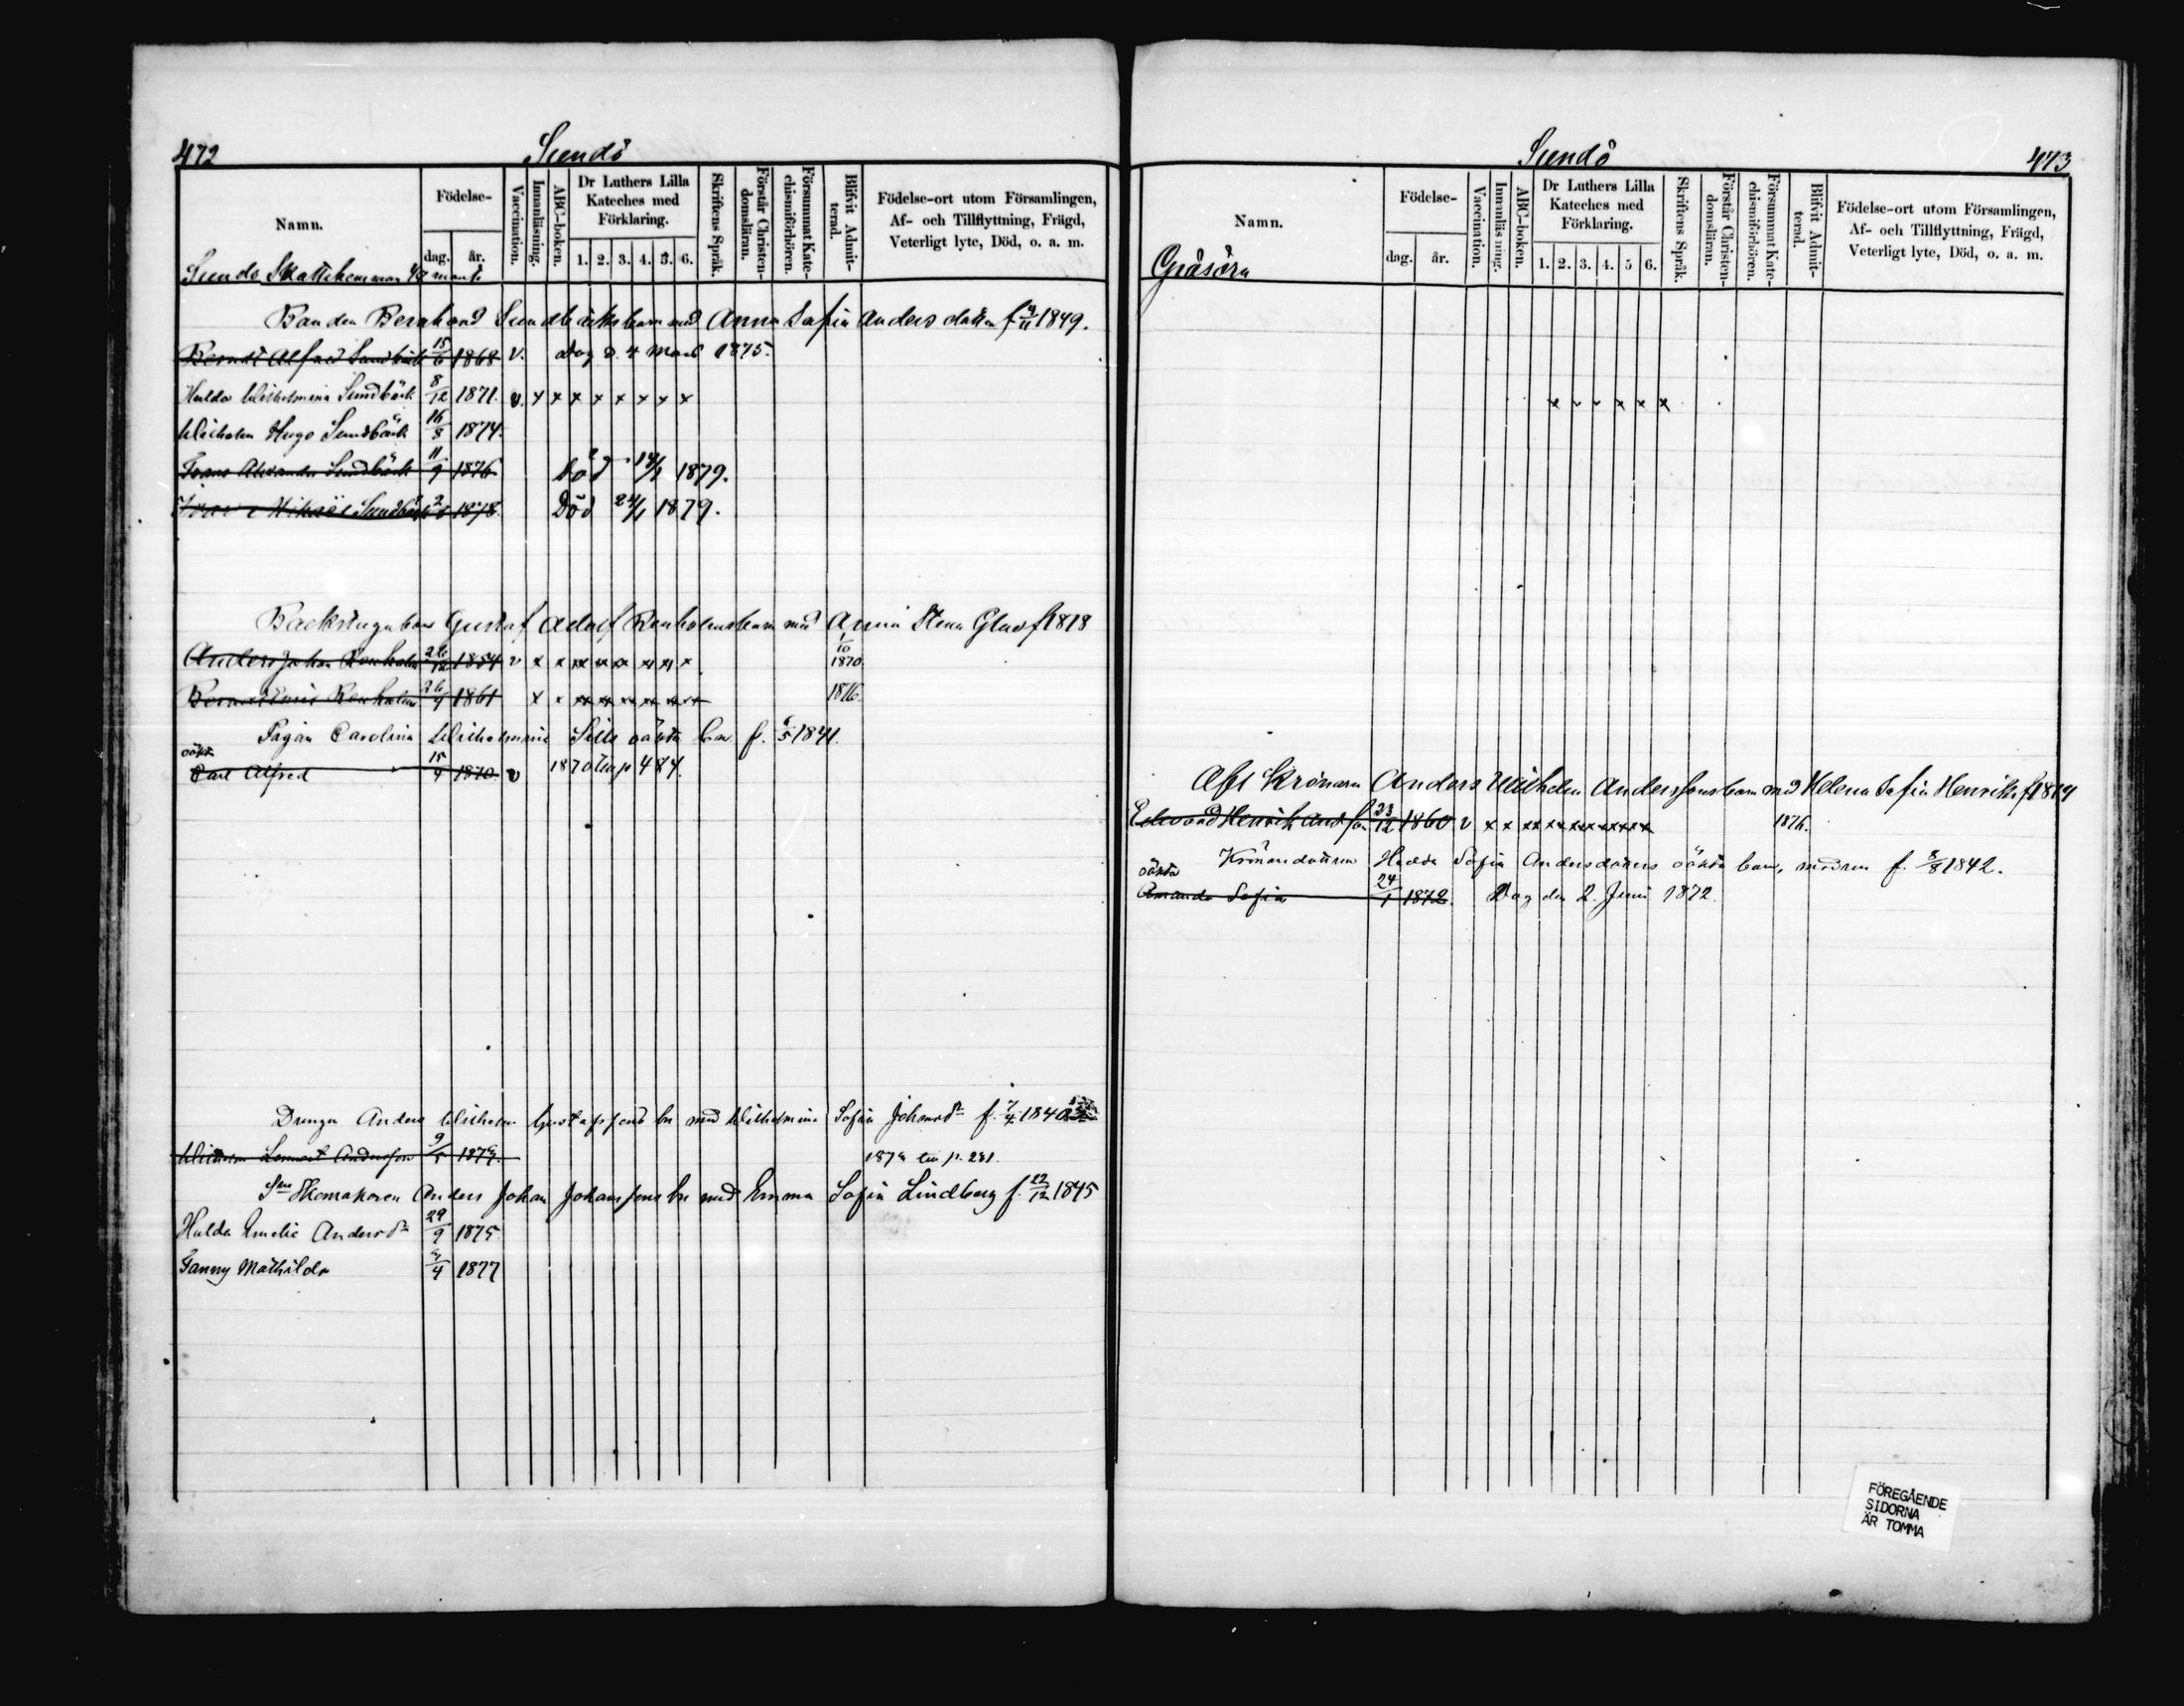 472
Sundö
Namn.
Födelse-
dag. år.
Vaccination.
Innanläsning.
ABC-boken.
Dr Luthers Lilla Kateches med Förklaring.
1. 2. 3. 4. 5. 6.
Skriftens Språk.
Förstår Christendomsläran.
Försummat Katechismiförhören.
Blifvit Admitterad.
Födelse-ort utom Församlingen,
Af- och Tillflyttning, Frägd,
Veterligt lyte, Död, o. a. m.
Sundö Skattehemman
Bonden Bernhard Sundbäcks barn med Anna Sofia Andersdotter f. 1849.
Berndt Alfred Sundbäck 15/6 1868 v. dog d. 4 Mars 1875.
Hulda Wilhelmina Sundbäck 8/12 1871. v. x x x x x x x x
Wilhelm Hugo Sundbäck 16/8 1874.
Frans Alexander Sundbäck 11/9 1876 Död 14/1 1879.
Ivar Mikael Sundbäck 1878. Död 24/1 1879.
Backstuguhans Gustaf Adolf Renholms barn med Anna Stena f 1818
Anders Johan Renholm 26/12 1854 v x x xx xx xx x x x 1870.
Renholm 26/4 1861 x x xx xx xx xx xx 1876.
Pigan Carolina Wilhelmina oäkta bn f. 6/5 1841.
oäkta
Carl Alfred 15/4 1870. v 1870 till p 484.
Drengen Anders Wilhelm Gustafssons bn med Wilhelmina Sofia Johansdr f. 7/4 1840
Wilhelm Lennart Andersson 9/5 1879. 1879 till p. 231.
Skomakaren Anders Johan Johanssons bn med Emma Sofia Lindberg f. 22/12 1845
Hulda Amelie Andersdr 29/9 1875
Fanny Mathilda 1877
Sundö
473
Namn.
Födelse-
dag. år.
Vaccination.
Innanläs ning.
ABC-boken.
Dr Luthers Lilla Kateches med Förklaring.
1. 2. 3. 4. 5 6.
Skriftens Språk.
Förstår Christendomsläran.
Försummat Katechismiförhören.
Blifvit Admitterad.
Födelse-ort utom Församlingen,
Af- och Tillflyttning, Frägd,
Veterligt lyte, Död, o. a. m.
Gräsöra
Afl Krönaren Anders Wilhelm Anderssons barn med Helena Sofia Henriks f 1819
Edward Henrik Andson 23/12 1860 v x x xx xx xx xx xx 1876.
Krönaredottren Hedda Sofia Andersdotters oäkta barn, modren f. 5/8 1842.
oäkta
Amanda Sofia 24/1 1872. Dog den 2. Juni 1872.
FÖREGÅENDE
SIDORNA
ÄR TOMMA